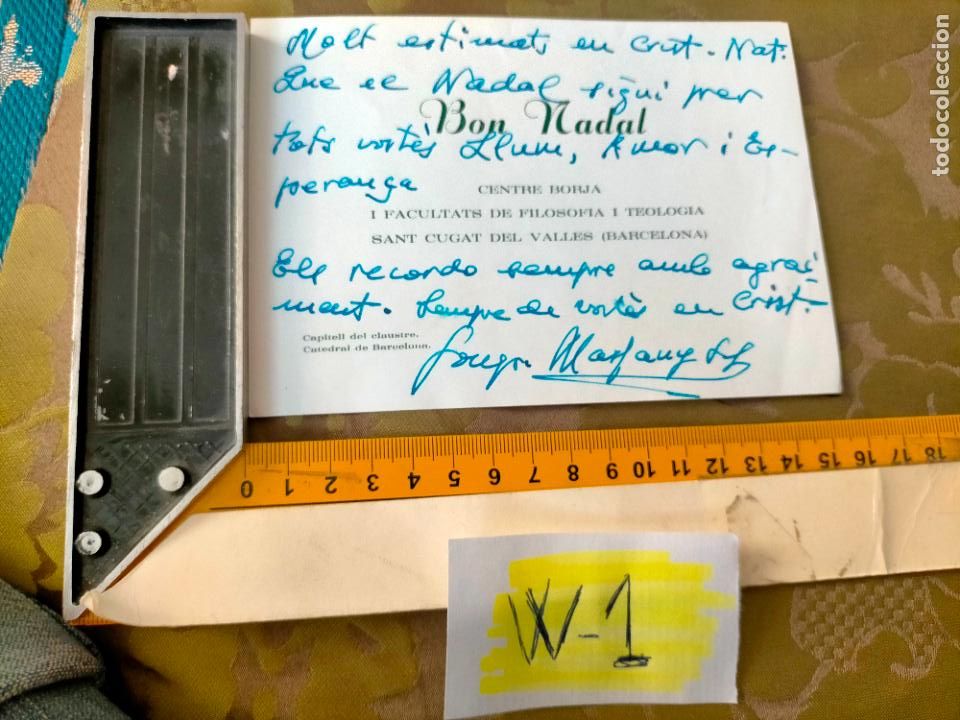 Molt estimats en Crist. Nat.
Que el Nadal sigui per
Bon Nadal
tots vostès Llum, Amor i Es-
perança
CENTRE BORJA
I FACULTATS DE FILOSOFIA I TEOLOGIA
SANT CUGAT DEL VALLES (BARCELONA)
Els recordo sempre amb agraï
ment. Sempre de vostès en Crist.
Capitell del claustre.
Catedral de Barcelona.
Marfany SJ
0 1 2 3 4 5 6 7 8 9 10 11 12 13 14 15 16 17 18
W-1
todocoleccion